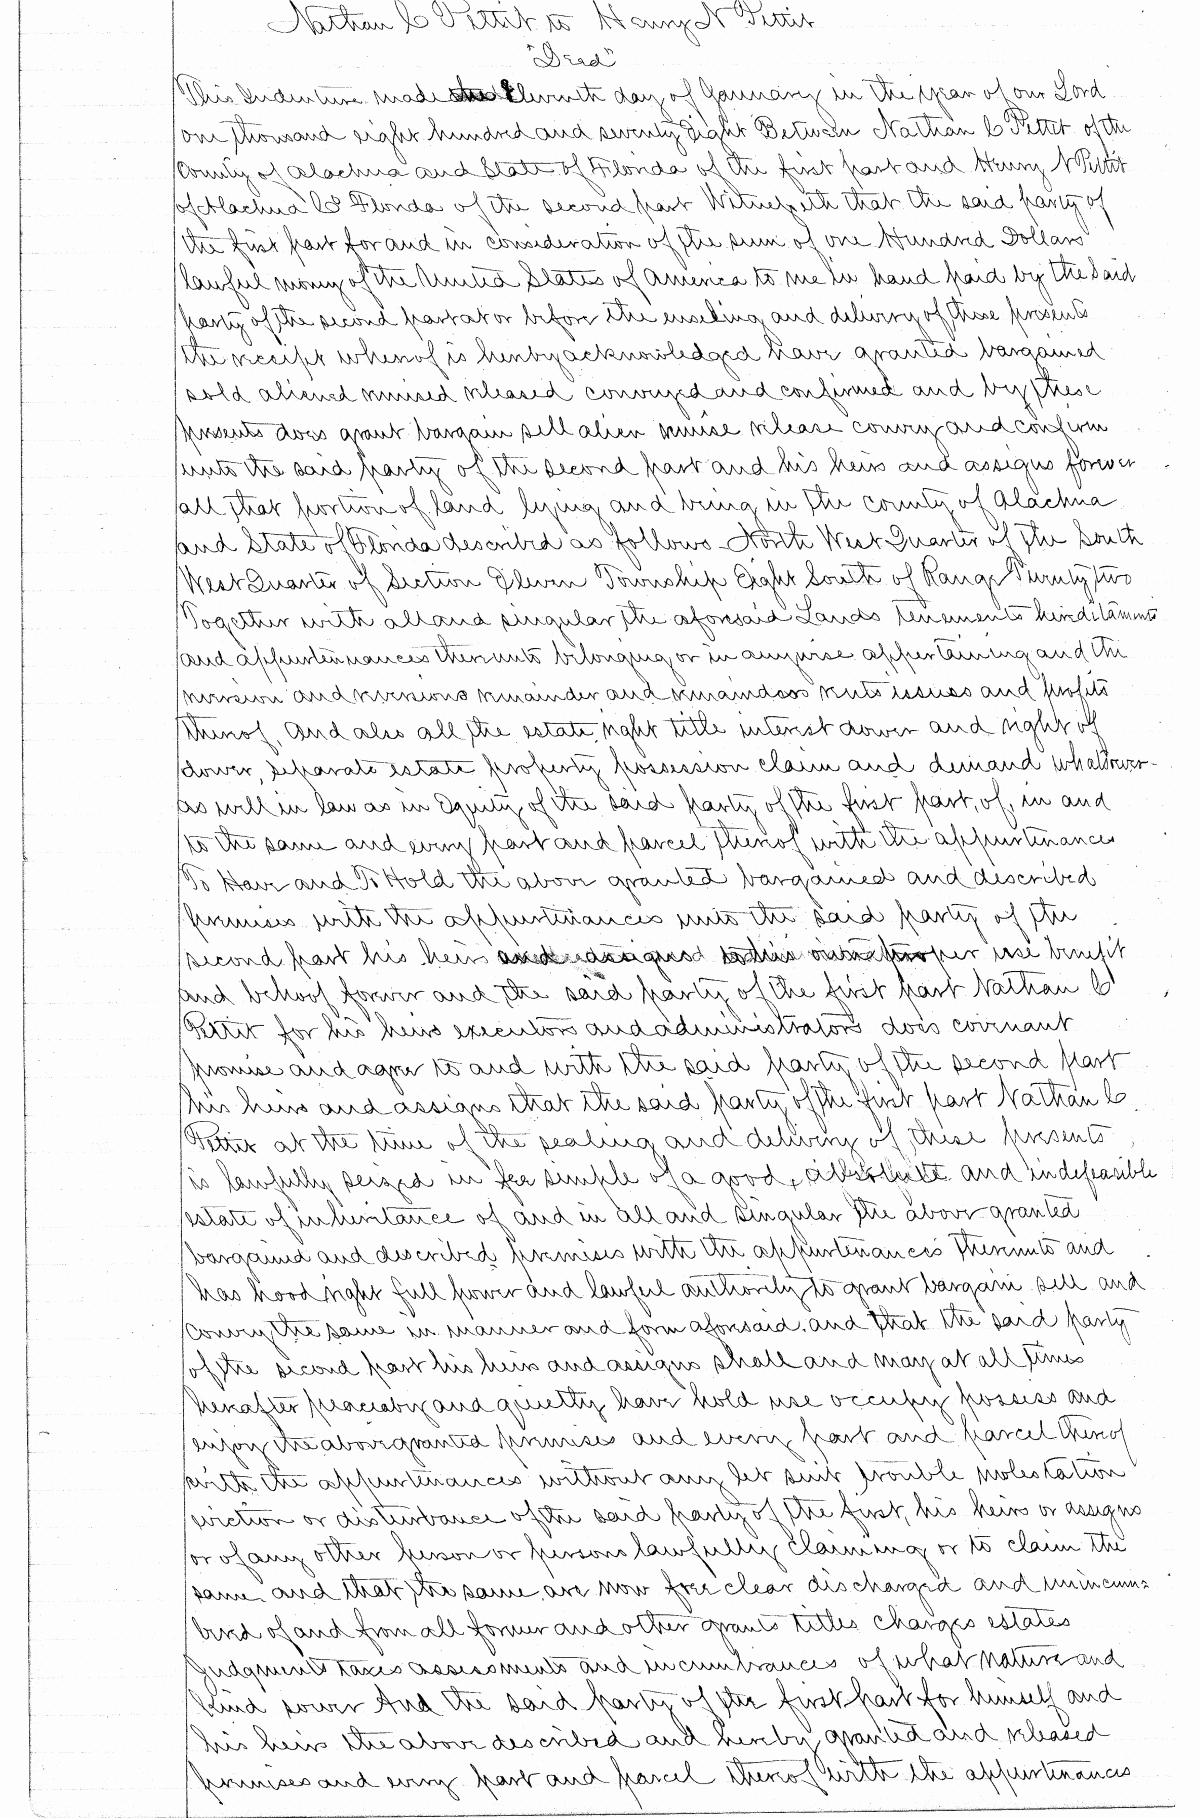 Nathan C Pettit to Henry N Pettit
"Deed"
This Indenture made the Eleventh day of January in the year of our Lord
one thousand eight hundred and seventy Eight Between Nathan C Pettit of the
County of Alachua and State of Florida of the first part and Henry N Pettit
of Alachua Co Florida of the second part Witnesseth that the said party of
the first part for and in consideration of the sum of one Hundred Dollars
lawful money of the United States of America to me in hand paid by the said
party of the second part at or before the ensealing and delivery of these presents
the receipt whereof is hereby acknowledged have granted bargained
sold aliened remised released conveyed and confirmed and by these
presents does grant bargain sell alien remise release convey and confirm
unto the said party of the second part and his heirs and assigns forever
all that portion of land lying and being in the county of Alachua
and State of Florida described as follows North West Quarter of the South
West Quarter of Section Eleven Township Eight South of Range Twenty two
Together with all and singular the aforesaid Lands tenements hereditaments
and appurtenances thereunto belonging or in anywise appertaining and the
reversion and reversions remainder and remainders rents issues and profits
thereof. And also all the estate right title interest dower and right of
dower, separate estate property possession claim and demand whatsoever
as well in law as in Equity of the said party of the first part, of, in and
to the same and every part and parcel thereof with the appurtenances
To Have and To Hold the above granted bargained and described
premises with the appurtenances unto the said party of the
second part his heirs and assigns to his own proper use benefit
and behoof forever and the said party of the first part Nathan C
Pettit for his heirs executors and administrators does covenant
promise and agree to and with the said party of the second part
his heirs and assigns that the said party of the first part Nathan C
Pettit at the time of the sealing and delivery of these presents
is lawfully seized in fee simple of a good, absolute and indefeasible
estate of inheritance of and in all and singular the above granted
bargained and described premises with the appurtenances thereunto and
has hood right full power and lawful authority to grant bargain sell and
convey the same in manner and form aforesaid. and that the said party
of the second part his heirs and assigns shall and may at all times
hereafter peaceably and quietly have hold use occupy possess and
enjoy the above granted premises and every part and parcel thereof
with the appurtenances without any let suit trouble molestation
eviction or disturbance of the said party of the first, his heirs or assigns
or of any other person or persons lawfully claiming or to claim the
same and that the same are now free clear discharged and unincum=
bered of and from all former and other grants titles charges estates
Judgments taxes assessments and incumbrances of what nature and
kind soever And the said party of the first part for himself and
his heirs the above described and hereby granted and released
premises and every part and parcel thereof with the appurtenances